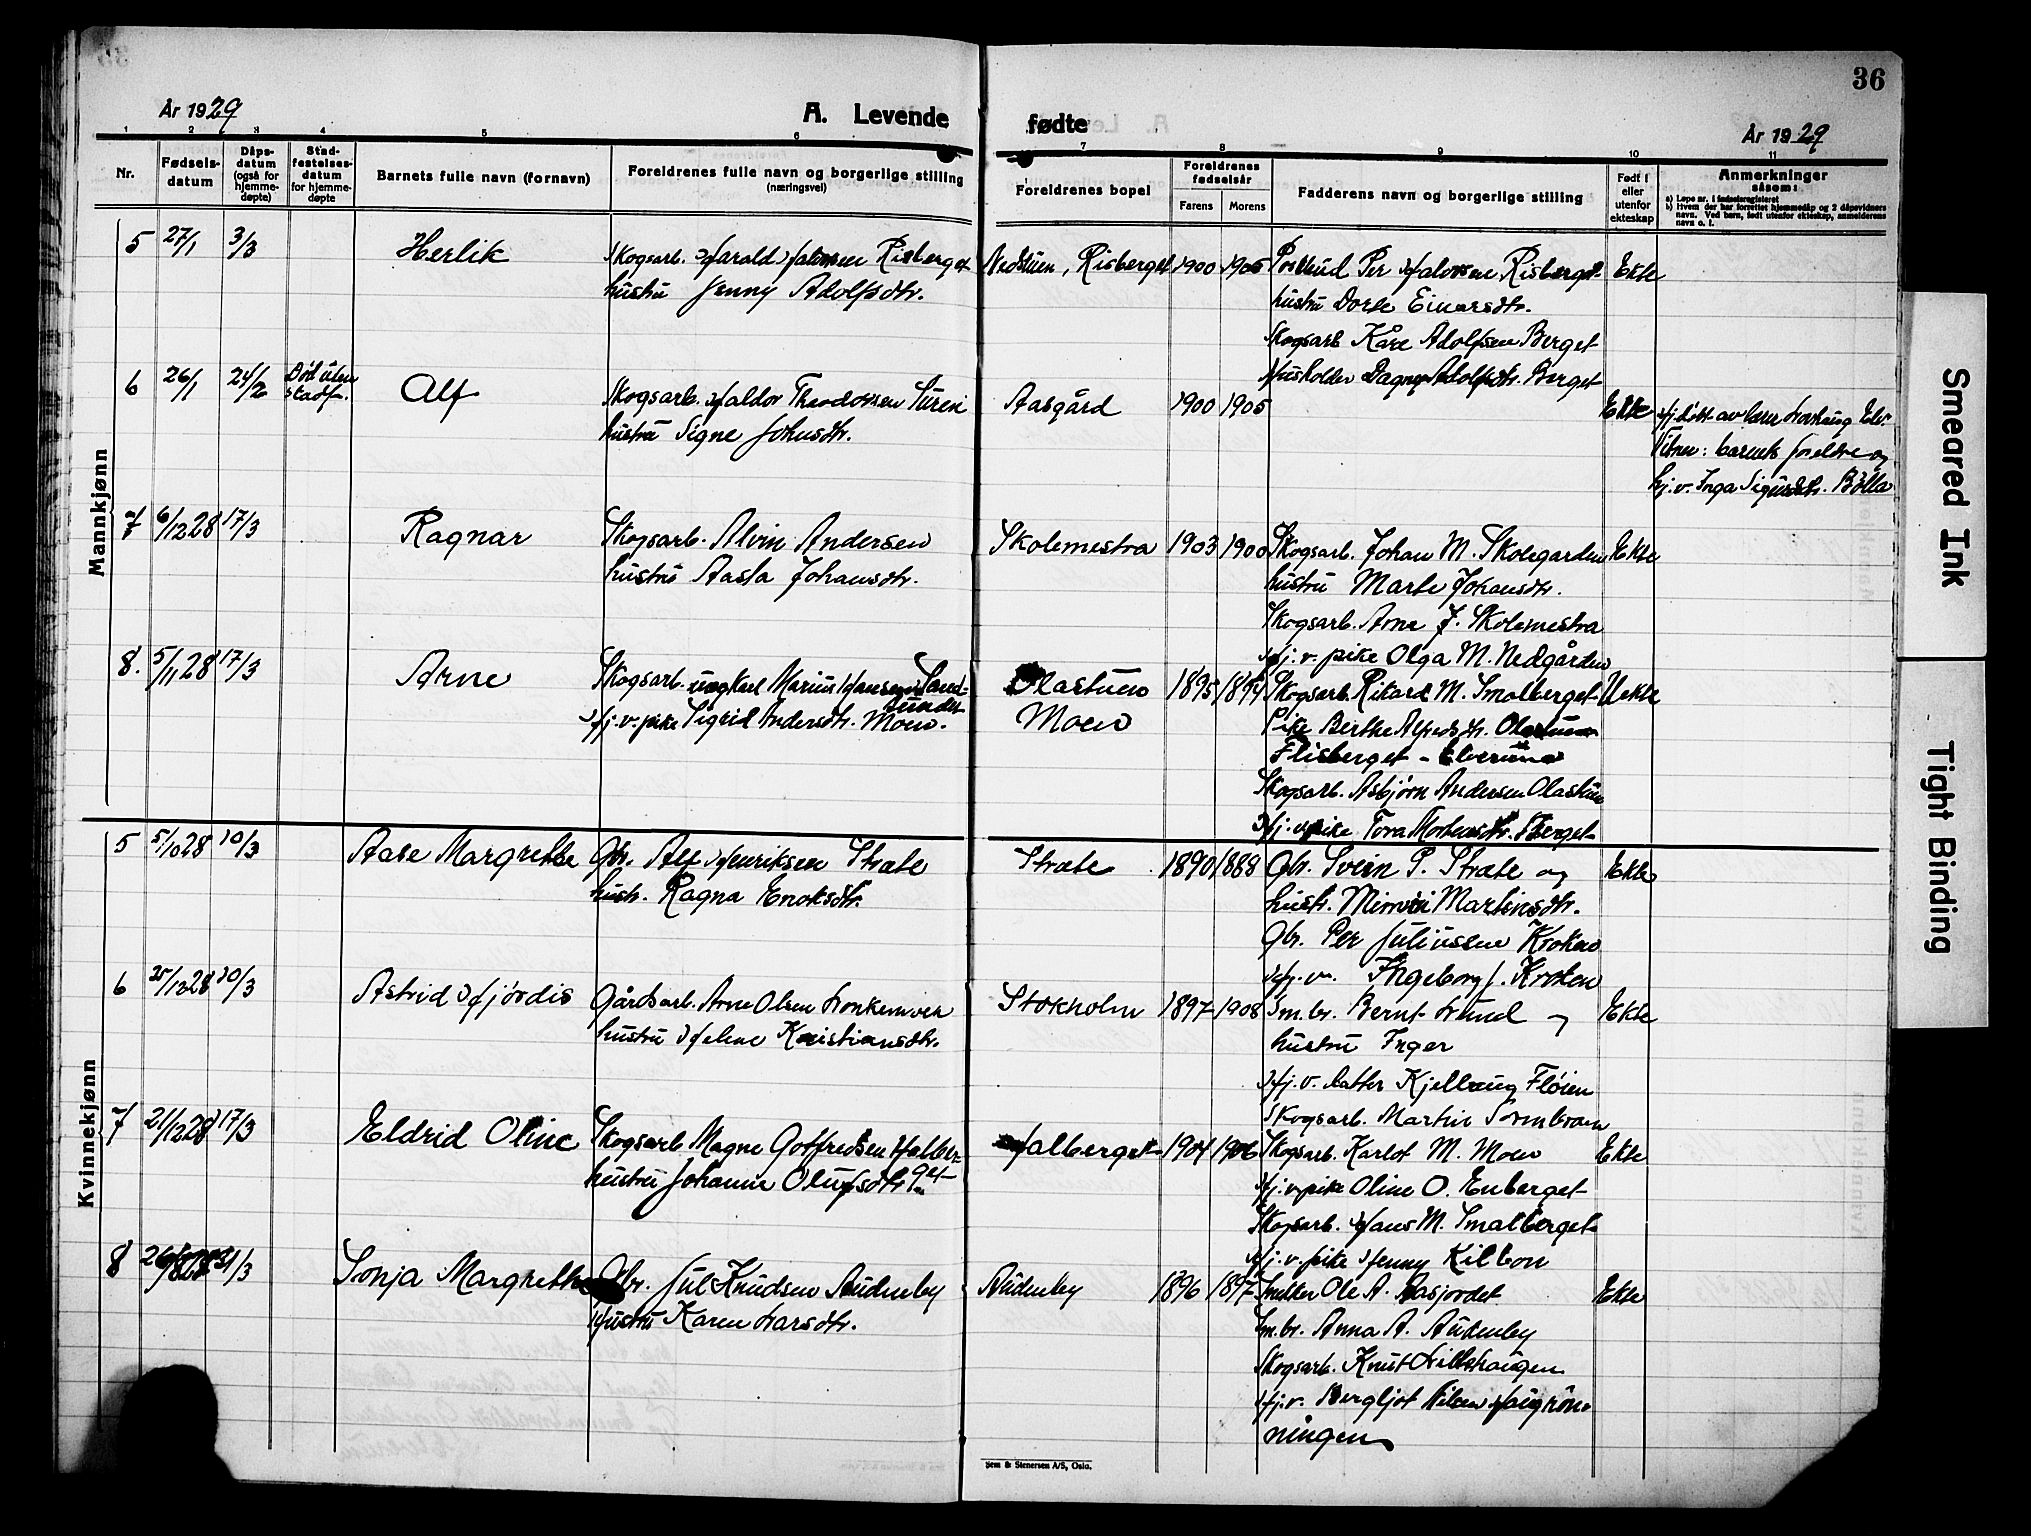 36
År 1929
A. Levende
fødte
År 1929
1 2 3 4 5 6 7 8 9 10 11
Nr.
Fødsels-
datum
Dåps-
datum
(også for
hjemme-
døpte)
Stad-
festelses-
datum
for hjemme-
døpte
Barnets fulle navn (fornavn)
Foreldrenes fulle navn og borgerlige stilling
(næringsvei)
Foreldrenes bopel
Foreldrenes
fødselsår
Farens Morens
Fadderens navn og borgerlige stilling
Født i
eller
utenfor
ekteskap
Anmerkninger
såsom:
a) Løpe nr. i fødselsregisteret
b) Hvem der har forrettet hjemmedåp og 2 dåpsvidners
navn. Ved barn, født utenfor ekteskap, anmelderens
navn o. l.
Mannkjønn
5 27/1 3/3 Herlik
Skogsarb. Harald Halvorsen Risberget
hustru Jenny Adolfsdtr.
Nedstuen, Risberget 1900 1905
Postbud Per Halvorsen Risberget
hustru Dorte Einarsdtr.
Skogsarb Kåre Adolfsen Berget
Husholder Dagny Adolfsdtr. Berget
Ekte
6 26/1 24/2 Død uten
stadf.
Alf
Skogsarb. Haldor Theodorsen Tureni
hustru Signe Johnsdtr.
Aasgård 1900 1905
Ekte
Hj.døbt av lærer
Vitner: barnets foreldre og
hj.v. Inga Sigurdsdtr. Bölla
7 6/12 28 17/3 Ragnar
Skogsarb. Alvin Andersen
hustru Aasta Johansdtr.
Skolemestra 1903 1900
Skogsarb. Johan M. Skolegarden
hustru Marte Johansdtr.
Skogsarb. Arne J. Skolemestra
Hj.v. pike Olga M. Nedgården
Ekte
8. 5/11 28 17/3 Arne
Skogsarb. ungkarl Marius Hansen Sand-
sunder
Hj.v. pike Sigrid Andersdtr. Moen.
Olastuen
Moen
1895 1894
Skogsarb Rikard M. Smalberget
Pike Berthe Alfredsdtr. Olastuen
Flisberget - Elverum
Skogsarb. Asbjörn Andersen Olastuen
Hj.v.pike Tora Mortensdtr. Berget
Uekte
Kvinnekjønn
5 5/10 28 10/3 Aase Margrethe
Gbr. Alf Henriksen Stræte
hustr. Ragna Enoksdtr.
Stræte 1890 1888
Gbr. Svein P. Stræte og
hustr. Minni Martinsdtr.
Gbr. Per Juliussen Kroken
Hj.v. Ingeborg J. Kroken
Ekte
6 25/12 28 10/3 Astrid Hjördis
Gårdsarb. Arne Olsen
hustru Helene Kristiansdtr.
Stokholm 1897 1908
Sm.br. Bernt Lund og
hustru Inger
Hj.v. datter Kjellaug Flöien
Skogsarb. Martin
Ekte
7 21/12 28 17/3 Eldrid Oline
Skogsarb. Magne Gotfredsen Halber-
get
hustru Johanne Olufsdtr
Halberget 1904 1906
Skogsarb. Karlot M. Moen
Hj.v.pike Oline O. Enberget
Skogsarb. Hans M. Smalberget
Hj.v. pike Jenny Kilbon
Ekte
8 31/3 Sonja Margrethe
Gbr. Jul Knudsen Audenby
Hustru Karen Larsdtr.
Audenby 1896 1897
Snekker Ole A. Aasjordet
Sm.br. Anna A. Audenby
Skogsarb. Knut Lilleshaugen
Hj.v. Bergljot Nilsen
ningen
Ekte
Sem & Stenersen A/S, Oslo.
Smeared Ink
Tight Binding